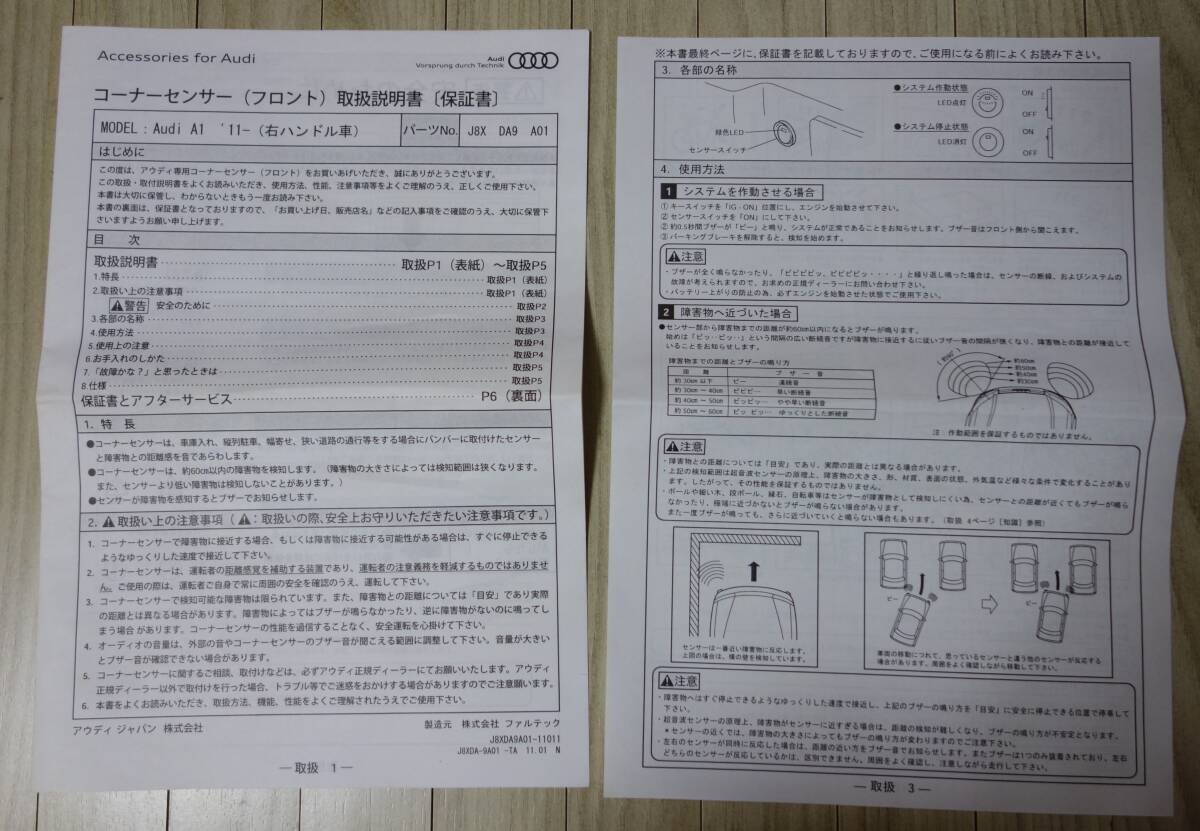 Accessories for Audi
Audi
Vorsprung durch Technik
コーナーセンサー(フロント)取扱説明書〔保証書〕
MODEL：Audi A1 '11-(右ハンドル車)
パーツNo.
J8X DA9 A01
はじめに
この度は、アウディ専用コーナーセンサー(フロント)をお買いあげいただき、誠にありがとうございます。
この取扱・取付説明書をよくお読みいただき、使用方法、性能、注意事項等をよくご理解のうえ、正しくご使用下さい。
本書は大切に保管し、わからないときもう一度お読み下さい。
本書の裏面は、保証書となっておりますので、「お買い上げ日、販売店名」などの記入事項をご確認のうえ、大切に保管下
さいますようお願い申し上げます。
目 次
取扱説明書 取扱P1(表紙)～取扱P5
1.特長 取扱P1(表紙)
2.取扱い上の注意事項 取扱P1(表紙)
警告 安全のために 取扱P2
3.各部の名称 取扱P3
4.使用方法 取扱P3
5.使用上の注意 取扱P4
6.お手入れのしかた 取扱P4
7.「故障かな？」と思ったときは 取扱P5
8.仕様 取扱P5
保証書とアフターサービス P6(裏面)
1. 特 長
●コーナーセンサーは、車庫入れ、縦列駐車、幅寄せ、狭い道路の通行等をする場合にバンパーに取付けたセンサー
と障害物との距離感を音であらわします。
●コーナーセンサーは、約60㎝以内の障害物を検知します。(障害物の大きさによっては検知範囲は狭くなります。
また、センサーより低い障害物は検知しないことがあります。)
●センサーが障害物を感知するとブザーでお知らせします。
2. 取扱い上の注意事項(：取扱いの際、安全上お守りいただきたい注意事項です。)
1. コーナーセンサーで障害物に接近する場合、もしくは障害物に接近する可能性がある場合は、すぐに停止できる
ようなゆっくりした速度で接近して下さい。
2. コーナーセンサーは、運転者の距離感覚を補助する装置であり、運転者の注意義務を軽減するものではありませ
ん。ご使用の際は、運転者ご自身で常に周囲の安全を確認のうえ、運転して下さい。
3. コーナーセンサーで検知可能な障害物は限られています。また、障害物との距離については「目安」であり実際
の距離とは異なる場合があります。障害物によってはブザーが鳴らなかったり、逆に障害物がないのに鳴ってし
まう場合があります。コーナーセンサーの性能を過信することなく、安全運転を心掛けて下さい。
4. オーディオの音量は、外部の音やコーナーセンサーのブザー音が聞こえる範囲に調整して下さい。音量が大きい
とブザー音が確認できない場合があります。
5. コーナーセンサーに関するご相談、取付けなどは、必ずアウディ正規ディーラーにてお願いいたします。アウディ
正規ディーラー以外で取付けを行った場合、トラブル等でご迷惑をおかけする場合がありますのでご注意願います。
6. 本書をよくお読みいただき、取扱方法、機能、性能をよくご理解されたうえでご使用下さい。
アウディ ジャパン 株式会社
製造元 株式会社 ファルテック
J8XDA9A01-11011
J8XDA-9A01 -TA 11.01 N
― 取扱 1 ―
※本書最終ページに、保証書を記載しておりますので、ご使用になる前によくお読み下さい。
3. 各部の名称
緑色LED
センサースイッチ
●システム作動状態
LED点灯
ON
OFF
●システム停止状態
LED消灯
ON
OFF
4. 使用方法
1 システムを作動させる場合
① キースイッチを「IG-ON」位置にし、エンジンを始動させて下さい。
② センサースイッチを「ON」にして下さい。
② 約0.5秒間ブザーが「ピー」と鳴り、システムが正常であることをお知らせします。ブザー音はフロント側から聞こえます。
③ パーキングブレーキを解除すると、検知を始めます。
注意
・ブザーが全く鳴らなかったり、「ピピピピッ、ピピピピッ・・・・」と繰り返し鳴った場合は、センサーの断線、およびシステムの
故障が考えられますので、お求めの正規ディーラーにお問い合わせ下さい。
・バッテリー上がりの防止の為、必ずエンジンを始動させた状態でご使用下さい。
2 障害物へ近づいた場合
●センサー部から障害物までの距離が約60㎝以内になるとブザーが鳴ります。
始めは「ピッ‥ピッ‥」という間隔の広い断続音ですが障害物に接近するに従いブザー音の間隔が狭くなり、障害物との距離が接近して
いることをお知らせします。
障害物までの距離とブザーの鳴り方
距 離 ブ ザ ー 音
約30㎝以下 ピー 連続音
約30㎝～40㎝ ピピピ‥ 早い断続音
約40㎝～50㎝ ピッピッ‥ やや早い断続音
約50㎝～60㎝ ピッ ピッ‥ ゆっくりとした断続音
約60㎝
約50㎝
約40㎝
約30㎝
注：作動範囲を保証するものではありません。
注意
・障害物との距離については「目安」であり、実際の距離とは異なる場合があります。
・上記の検知範囲は超音波センサーの原理上、障害物の大きさ、形、材質、表面の状態、外気温など様々な条件で変化することがあり
ます。したがって、その性能を保証するものではありません。
・ポールや細い木、段ボール、縁石、自転車等はセンサーが障害物として検知しにくい為、センサーとの距離が近くてもブザーが鳴ら
なかったり、極端に近づかないとブザーが鳴らない場合があります。
また一度ブザーが鳴っても、さらに近づいていくと鳴らない場合もあります。(取扱 4ページ[知識]参照)
センサーは一番近い障害物に反応します。
上図の場合は、横の壁を検知しています。
ピー
ピー
車両の移動につれて、思っているセンサーと違う他のセンサーが反応する
場合があります。周囲をよく確認しながら移動して下さい。
注意
・障害物へはすぐ停止できるようなゆっくりした速度で接近し、上記のブザーの鳴り方を「目安」に安全に停止できる位置で停車して
下さい。
・超音波センサーの原理上、障害物がセンサーに近すぎる場合は、距離の検知が難しくなり、ブザーの鳴り方が不安定となります。
＊センサーの近くでは、障害物の大きさによってもブザーの鳴り方が変わりますのでご注意下さい。
・左右のセンサーが同時に反応した場合は、距離の近い方をブザー音でお知らせします。またブザーは1つのみ装着されており、左右
どちらのセンサーが反応しているかは、区別できません。周囲をよく確認し、注意しながら走行して下さい。
― 取扱 3 ―